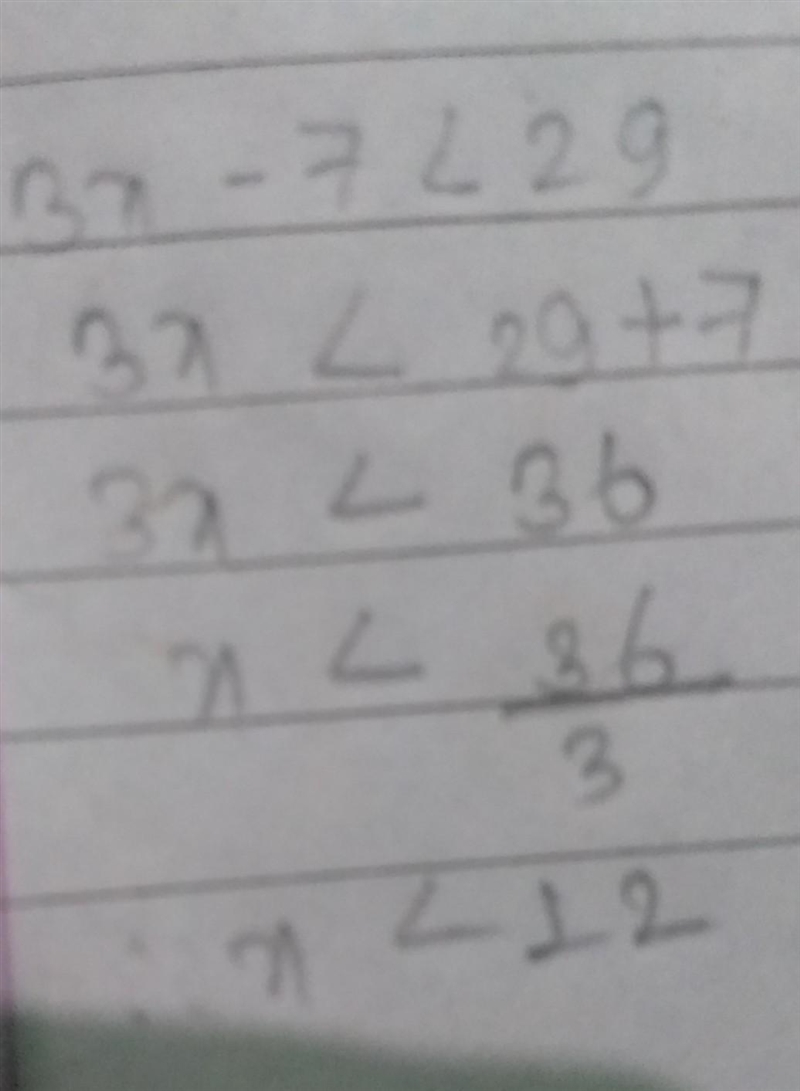 3x - 7 < 29
3x < 29 + 7
3x < 36
x < 36/3
x < 12